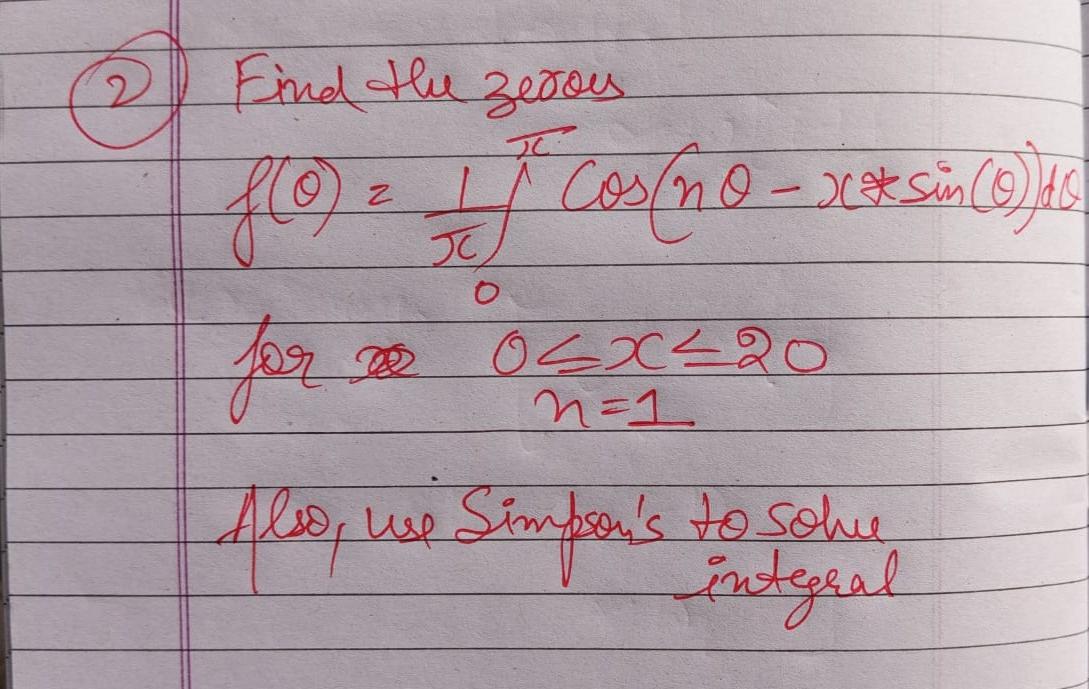 2 Find the zeroes
f(θ) = 1/π ∫₀^π Cos(nθ - x*sin(θ))dθ
for 0≤x≤20
n=1
Also, use Simpson's to solve
integral